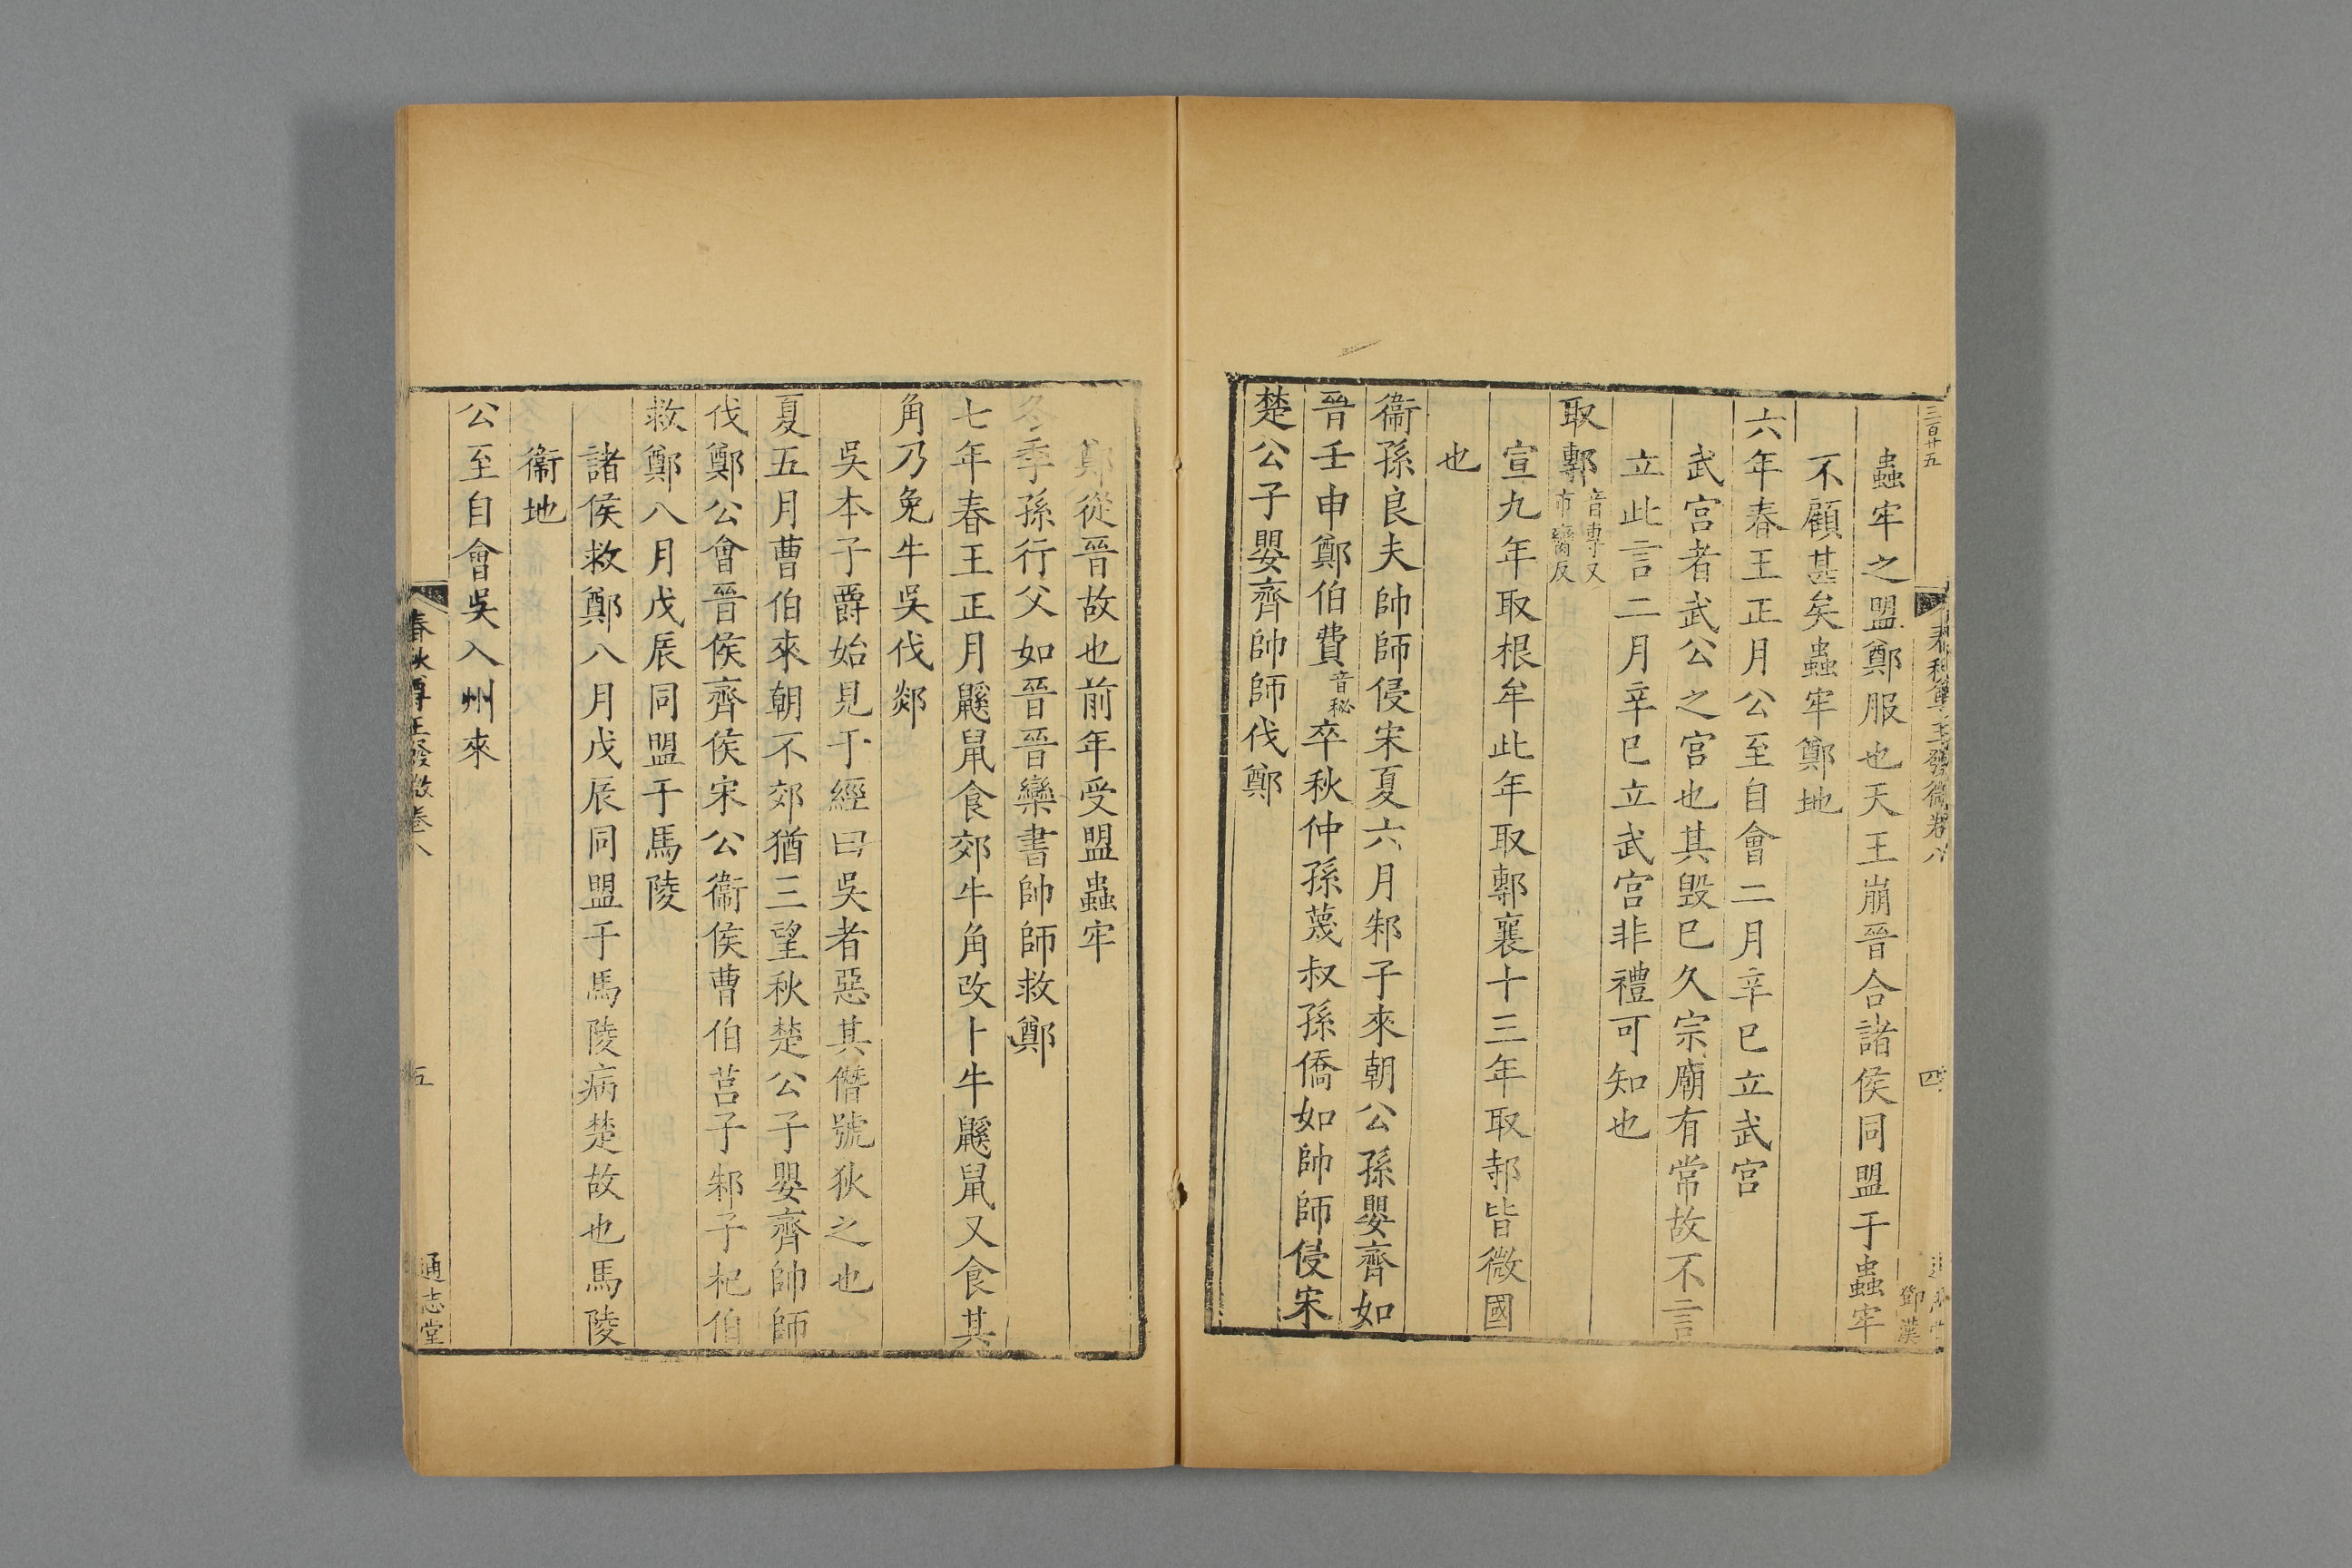 三百廿五
春秋尊王發微卷八
四
鄧漢
蟲牢之盟鄭服也天王崩晉合諸侯同盟于蟲牢
不顧甚矣蟲牢鄭地
六年春王正月公至自會二月辛巳立武宮
武宮者武公之宮也其毀巳久宗廟有常故不言
立此言二月辛巳立武宮非禮可知也
取鄟音專又市臠反
宣九年取根牟此年取鄟襄十三年取邿皆微國
也
衞孫良夫帥師侵宋夏六月邾子來朝公孫嬰齊如
晉壬申鄭伯費音秘卒秋仲孫蔑叔孫僑如帥師侵宋
楚公子嬰齊帥師伐鄭
鄭從晉故也前年受盟蟲牢
冬季孫行父如晉晉欒書帥師救鄭
七年春王正月鼷鼠食郊牛角改卜牛鼷鼠又食其
角乃免牛吳伐郯
吳本子爵始見于經曰吳者惡其僭號狄之也
夏五月曹伯來朝不郊猶三望秋楚公子嬰齊帥師
伐鄭公會晉侯齊侯宋公衞侯曹伯莒子邾子杞伯
救鄭八月戊辰同盟于馬陵
諸侯救鄭八月戊辰同盟于馬陵病楚故也馬陵
衞地
公至自會吳入州來
春秋尊王發微卷八
五
通志堂